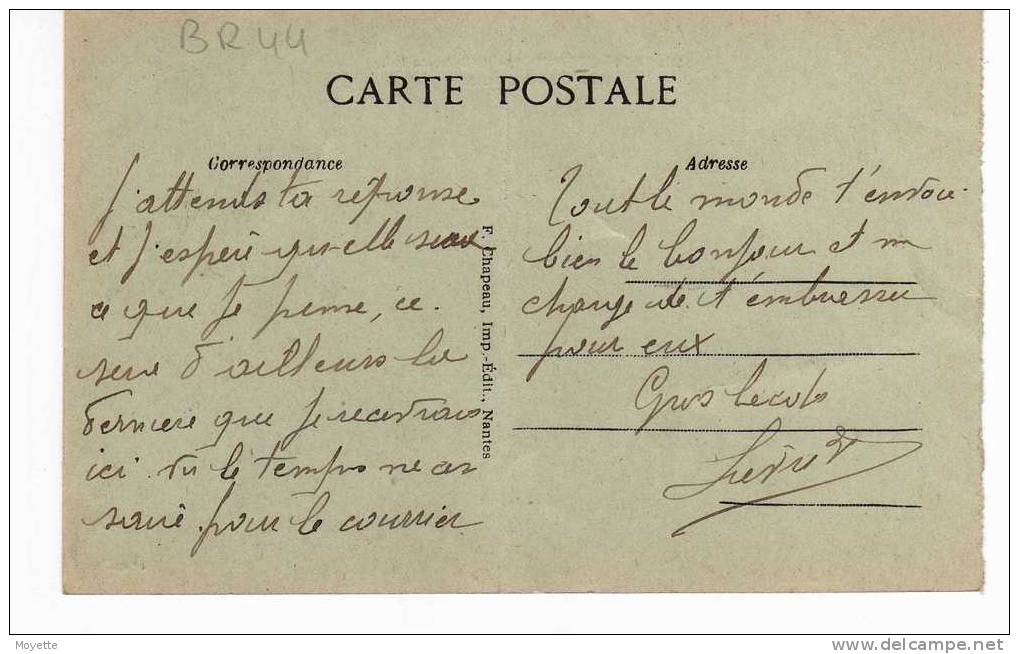 BR44
CARTE POSTALE
Correspondance
j'attends ta réponse
et j'espère qu'elle sera
ce que je pense, ce
sera d'ailleurs la
derniere que je recevrais
ici vu le temps neces
saire pour le courrier
F. Chapeau, Imp.-Édit., Nantes
Adresse
Tout le monde t'envoie
bien le bonjour et m
charge de t'embrasser
pour eux
Gros
Moyette
www.delcampe.net